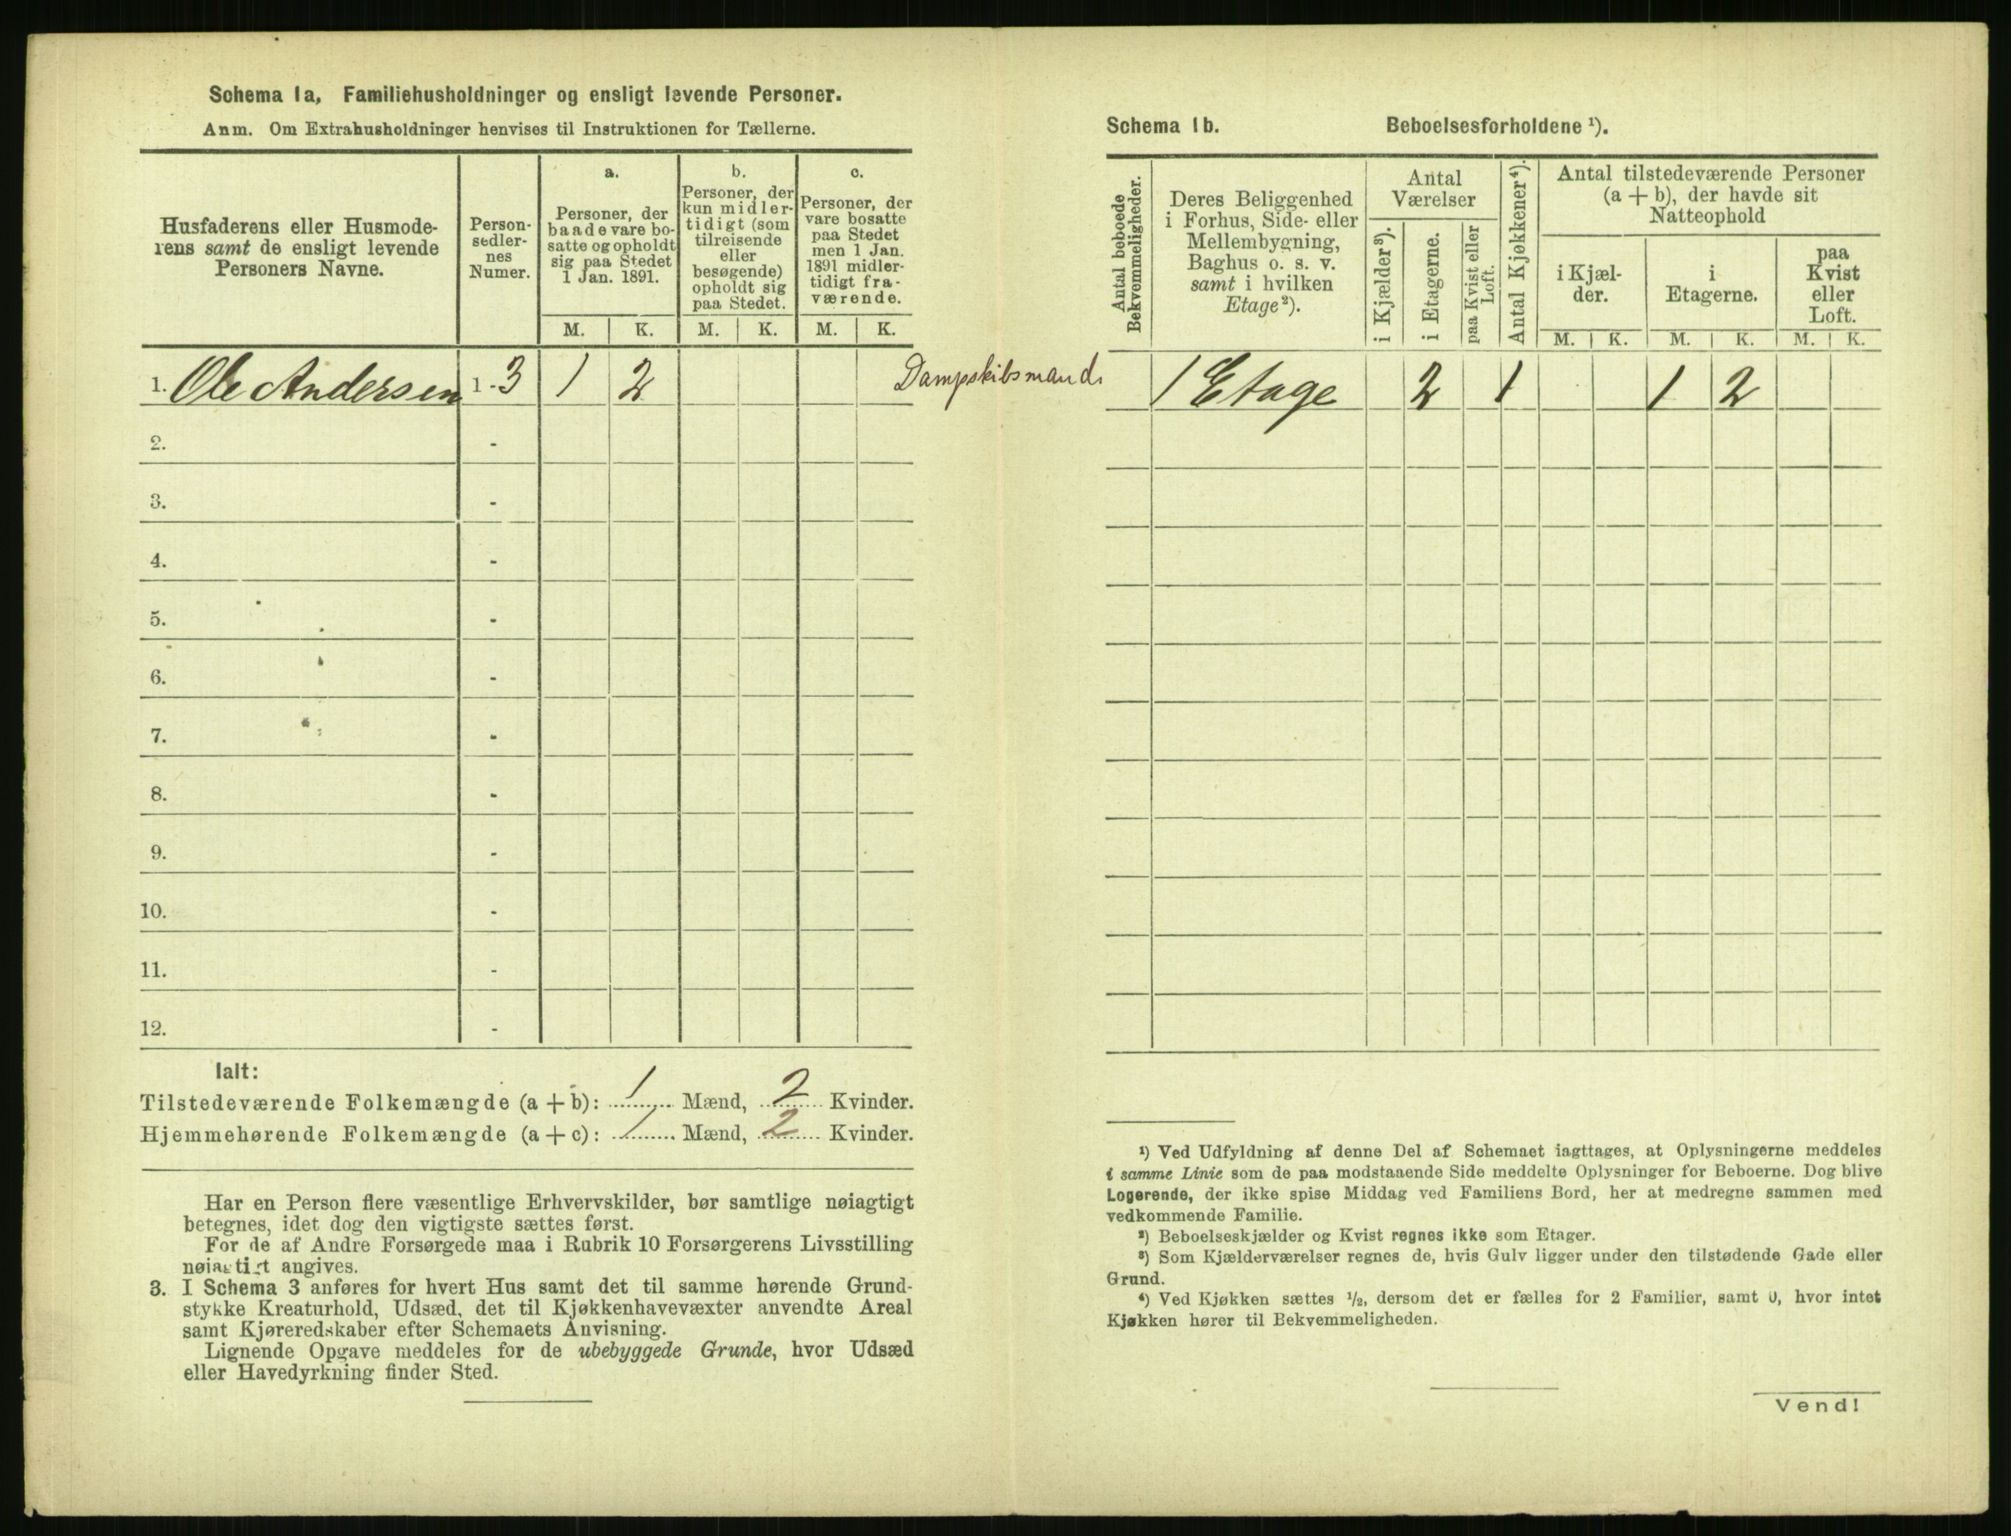 Schema 1a, Familiehusholdninger og ensligt levende Personer.
Anm. Om Extrahusholdninger henvises til Instruktionen for Tællerne.
Husfaderens eller Husmode-
rens samt de ensligt levende
Personers Navne.
Person-
sedler-
nes
Numer.
a.
Personer, der
baade vare bo-
satte og opholdt
sig paa Stedet
1 Jan. 1891.
b.
Personer, der
kun midler-
tidigt (som
tilreisende
eller
besøgende)
opholdt sig
paa Stedet.
c.
Personer, der
vare bosatte
paa Stedet
men 1 Jan.
1891 midler-
tidigt fra-
værende.
M. K. M. K. M. K.
1. Ole Andersen 1 - 3 1 2 Dampskibsmand
2. -
3. -
4. -
5. -
6. -
7. -
8. -
9. -
10. -
11. -
12. -
Ialt:
Tilstedeværende Folkemængde (a + b): 1 Mænd, 2 Kvinder.
Hjemmehørende Folkemængde (a + c): 1 Mænd, 2 Kvinder.
Har en Person flere væsentlige Erhvervskilder, bør samtlige nøiagtigt
betegnes, idet dog den vigtigste sættes først.
For de af Andre Forsørgede maa i Rubrik 10 Forsørgerens Livsstilling
nøiagtigt angives.
3. I Schema 3 anføres for hvert Hus samt det til samme hørende Grund-
stykke Kreaturhold, Udsæd, det til Kjøkkenhavevæxter anvendte Areal
samt Kjøreredskaber efter Schemaets Anvisning.
Lignende Opgave meddeles for de ubebyggede Grunde, hvor Udsæd
eller Havedyrkning finder Sted.
Schema 1b. Beboelsesforholdene ¹).
Antal beboede
Bekvemmeligheder.
Deres Beliggenhed
i Forhus, Side- eller
Mellembygning,
Baghus o. s. v.
samt i hvilken
Etage²).
Antal
Værelser
i Kjælder³).
i Etagerne.
paa Kvist eller
Loft.
Antal Kjøkkener⁴).
Antal tilstedeværende Personer
(a + b), der havde sit
Natteophold
i Kjæl-
der.
i
Etagerne.
paa
Kvist
eller
Loft.
M. K. M. K. M. K.
1 Etage 2 1 1 2
¹) Ved Udfyldning af denne Del af Schemaet iagttages, at Oplysningerne meddeles
i samme Linie som de paa modstaaende Side meddelte Oplysninger for Beboerne. Dog blive
Logerende, der ikke spise Middag ved Familiens Bord, her at medregne sammen med
vedkommende Familie.
²) Beboelseskjælder og Kvist regnes ikke som Etager.
³) Som Kjælderværelser regnes de, hvis Gulv ligger under den tilstødende Gade eller
Grund.
⁴) Ved Kjøkken sættes ½, dersom det er fælles for 2 Familier, samt 0, hvor intet
Kjøkken hører til Bekvemmeligheden.
Vend!